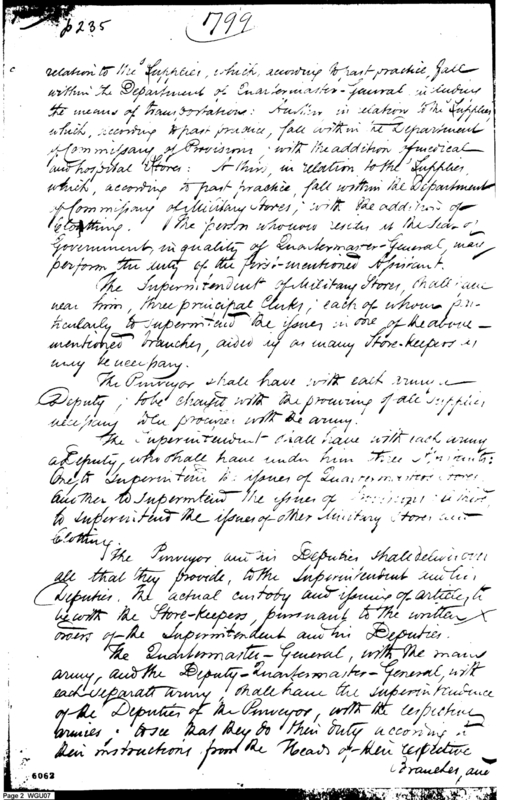 p 235
799
relation to the Supplies, which, according to past practice, fall
within the Department of Quartermaster-General, including
the means of transportation: Another in relation to the Supplies
which, according to past practice, fall within the Department
of Commissary of Provisions; with the addition of medical
and hospital Stores: A third, in relation to the Supplies,
which, according to past practice, fall within the Department
of Commissary of Military Stores; with the addition of
Clothing. The person who now resides in the Seat of
Government, in quality of Quartermaster-General, may
perform the duty of the first-mentioned Assistant.
The Superintendent of Military Stores, shall have
near him, three principal Clerks; each of whom par-
ticularly to superintend the issues in one of the above-
mentioned branches, aided by as many Store-keepers as
may be necessary.
The Purveyor shall have with each army a
Deputy; to be charged with the procuring of all supplies
necessary to be procured with the army.
The Superintendent shall have with each army
a Deputy, who shall have under him three Assistants:
One to superintend the issues of Quartermasters Stores
another to superintend the issues of Provisions; a third
to superintend the issues of other Military Stores and
Clothing.
The Purveyor and his Deputies shall deliver over
all that they provide, to the Superintendent and his
Deputies. The actual custody and issuing of articles, to
be with the Store-keepers, pursuant to the written
orders of the Superintendent and his Deputies.
The Quartermaster-General, with the main
army, and the Deputy-Quartermaster-General, with
each separate army, shall have the superintendence
of the Deputies of the Purveyor, with the respective
armies; to see that they do their duty according to
their instructions from the Heads of their respective
Branches, and
6062
Page 2 WGU07